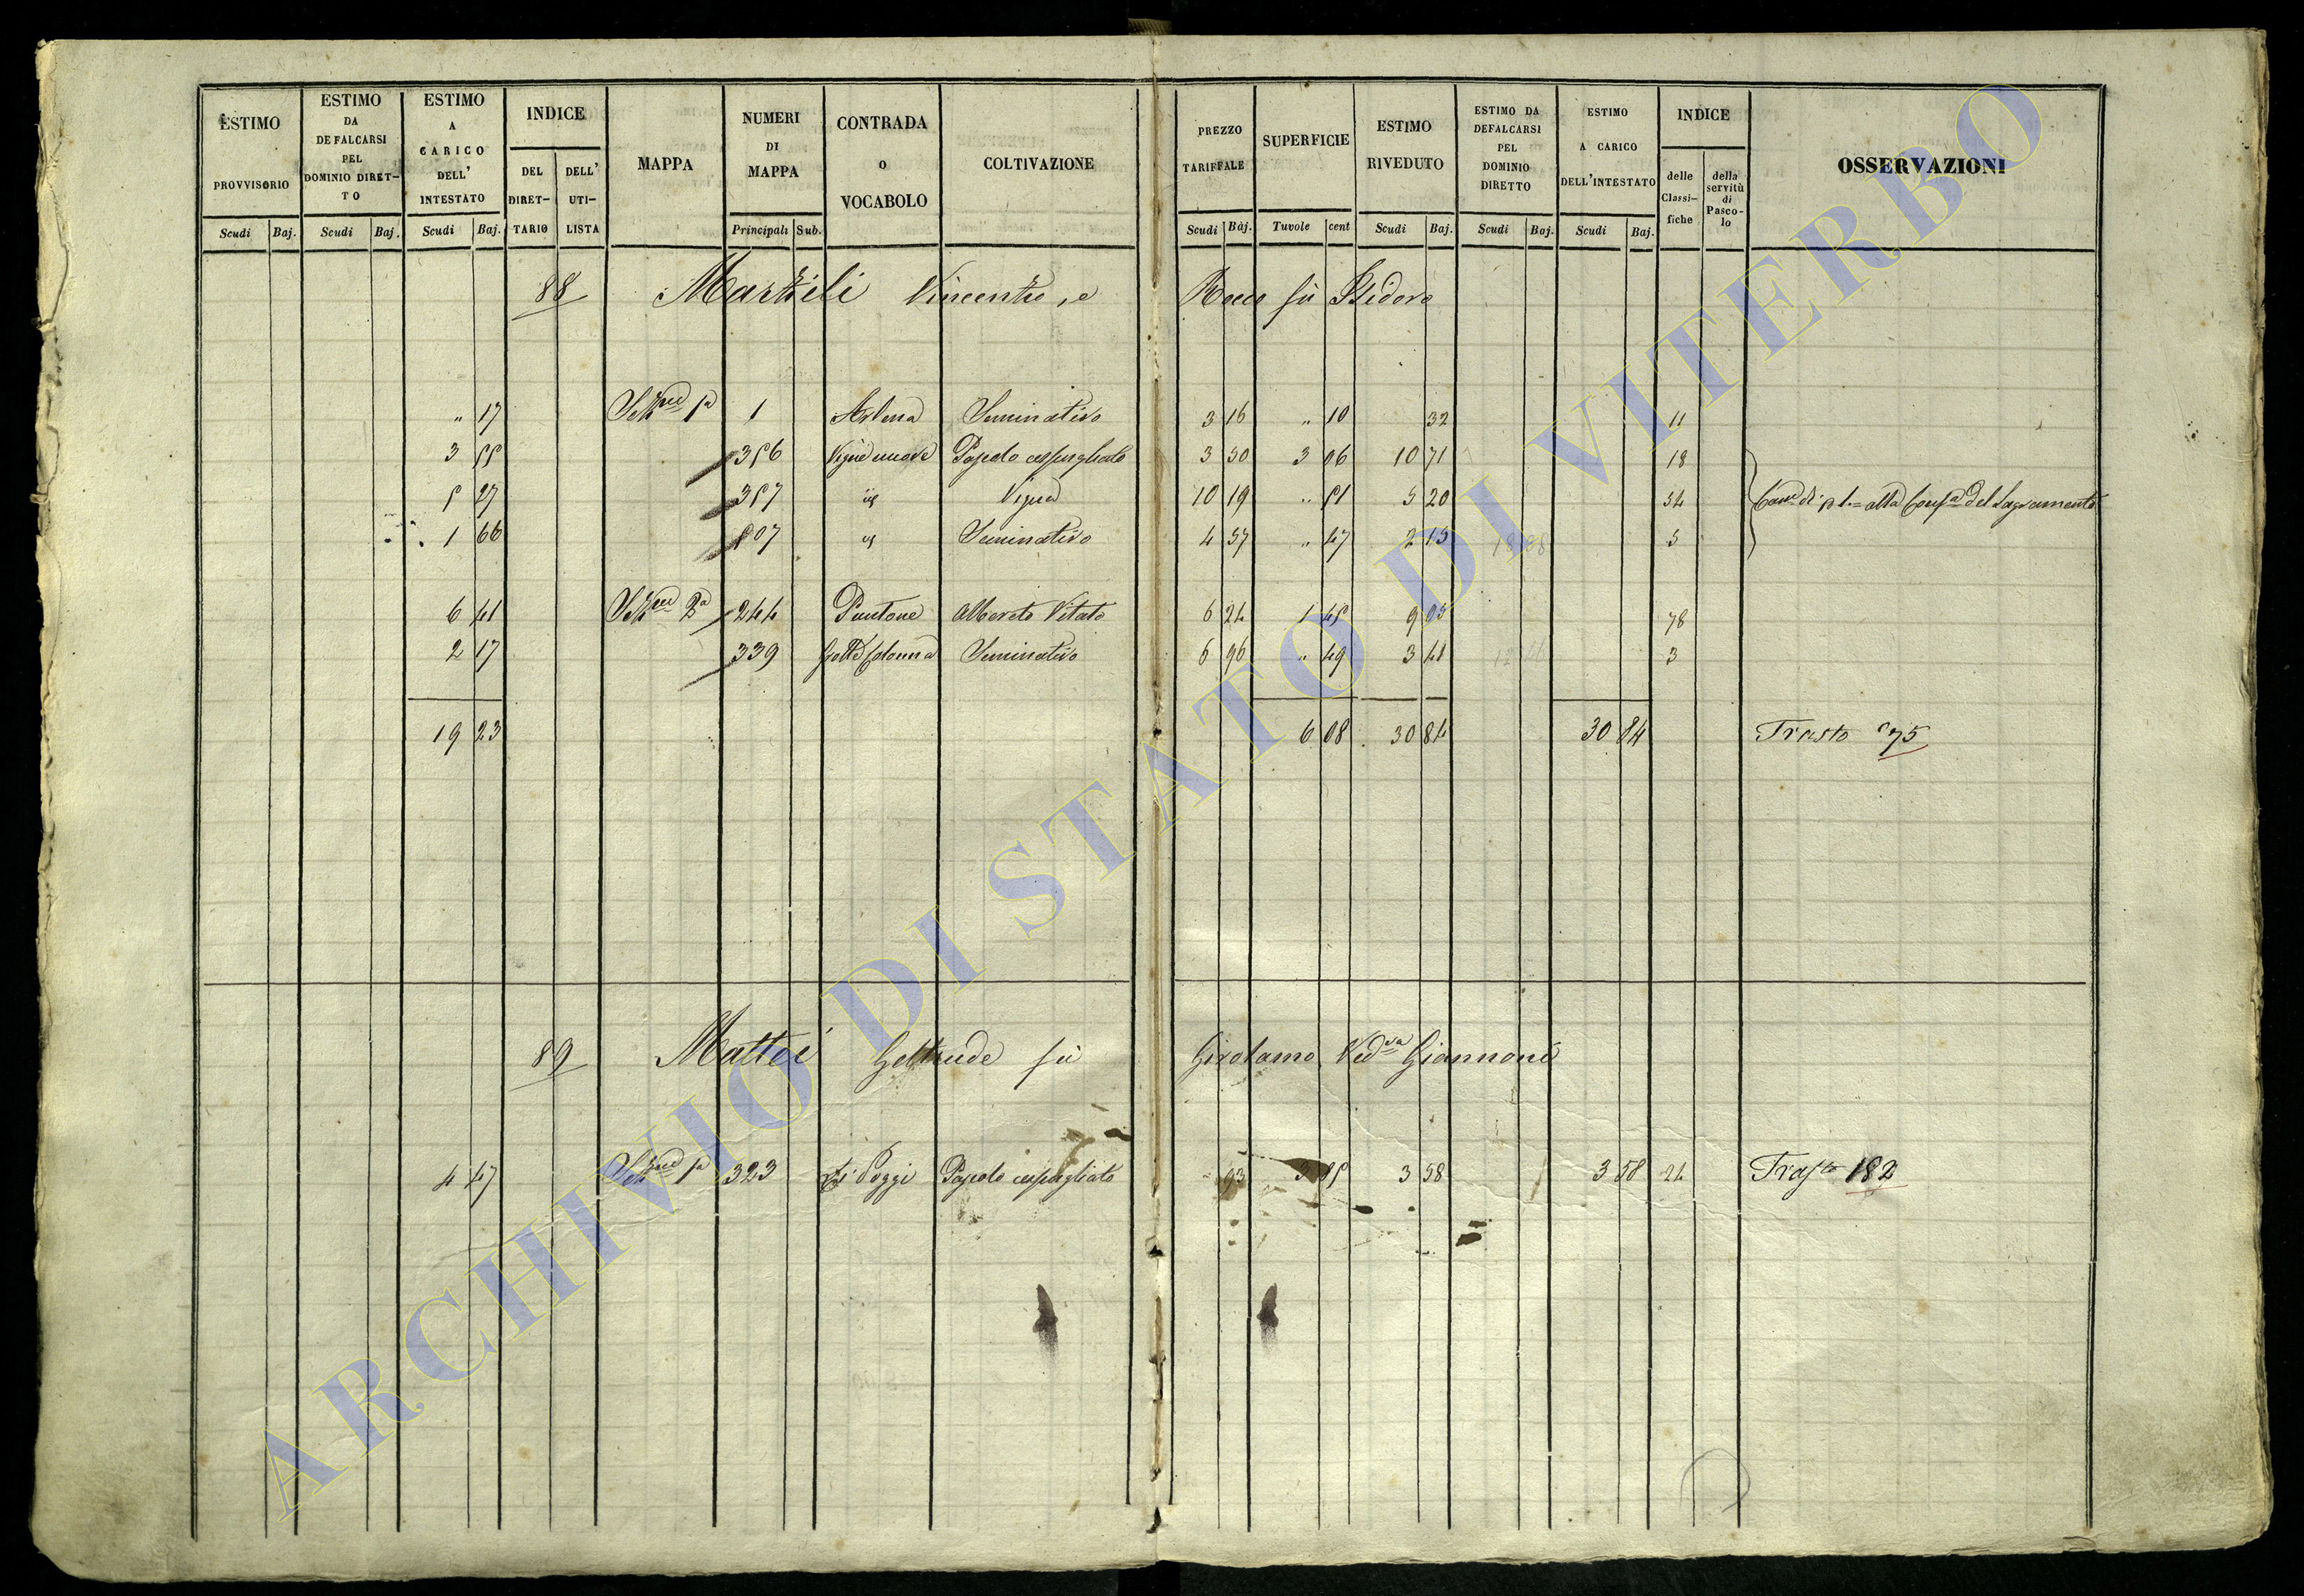 ESTIMO PROVVISORIO
ESTIMO DA DEFALCARSI PEL DOMINIO DIRET-TO
ESTIMO A CARICO DELL' INTESTATO
INDICE
DEL DIRET-TARIO
DELL' UTI-LISTA
MAPPA
NUMERI DI MAPPA
CONTRADA O VOCABOLO
COLTIVAZIONE
PREZZO TARIFFALE
SUPERFICIE
ESTIMO RIVEDUTO
ESTIMO DA DEFALCARSI PEL DOMINIO DIRETTO
ESTIMO A CARICO DELL'INTESTATO
INDICE
delle Classi-fiche
della servitù di Pasco-lo
OSSERVAZIONI
Scudi Baj. Scudi Baj. Scudi Baj. Principali Sub. Scudi Baj. Tavole cent Scudi Baj. Scudi Baj. Scudi Baj.
88 Martieli Vincenzo, e Rocco fù Isidoro
" 17 Sez.ne 1a 1 Arlena Seminativo 3 16 " 10 32 11
3 55 356 Vigne nuove Pascolo cespugliato 3 50 3 06 10 71 18
5 27 357 id Vigna 10 19 " 51 5 20 34
1 66 807 id Seminativo 4 57 " 47 2 15 5
alla Conf.a del Sagramento
6 41 Sez.ne 2a 244 Puntone Alberato Vitato 6 24 1 45 9 05 78
2 17 339 Grotte Colonna Seminativo 6 96 " 49 3 41 3
19 23 6 08 30 84 30 84 Trasto 75
89 Mattei Geltrude fù Girolamo Ved.va Giannoni
4 47 Sez.ne 1a 323 Li Poggi Pascolo cespugliato 93 3 85 3 58 3 58 24 Trasto 182
ARCHIVIO DI STATO DI VITERBO